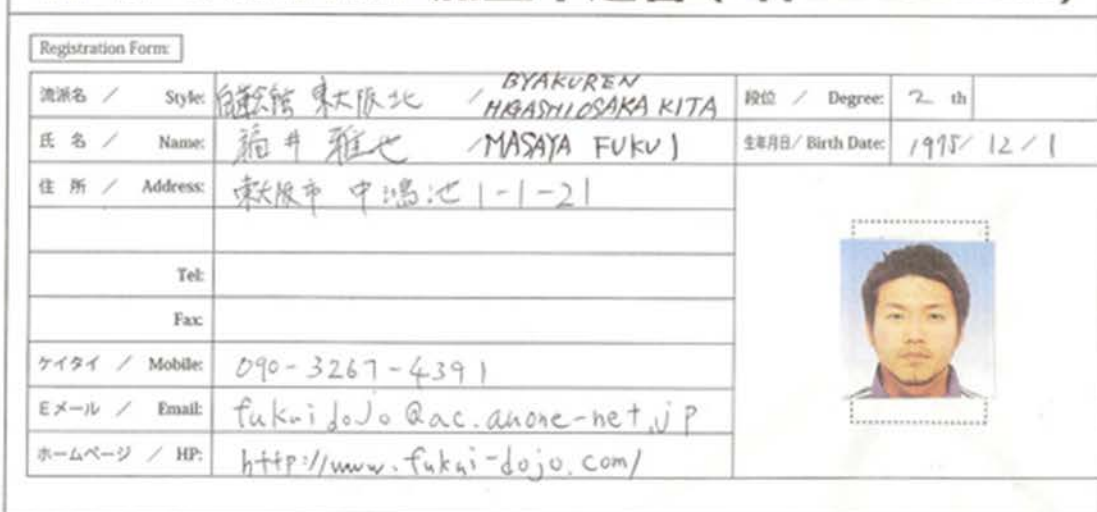 Registration Form:
流派名 / Style: 白蓮会館 東大阪北 / BYAKUREN HIGASHIOSAKA KITA
段位 / Degree: 2 th
氏 名 / Name: 福井 雅也 / MASAYA FUKUI
生年月日 / Birth Date: 1975/ 12 / 1
住 所 / Address: 東大阪市 中鴻池 1-1-21
Tel:
Fax:
ケイタイ / Mobile: 090-3267-4391
Eメール / Email: fukuidojo@ac.auone-net.jp
ホームページ / HP: http://www.fukui-dojo.com/